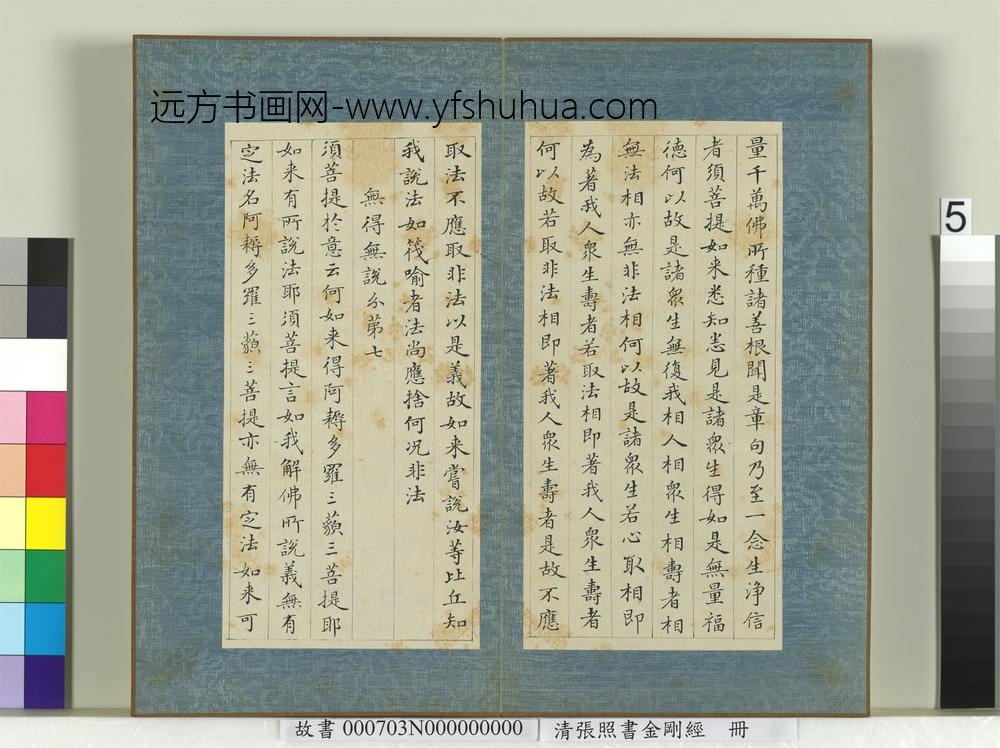 远方书画网-www.yfshuhua.com
量千萬佛所種諸善根聞是章句乃至一念生淨信
者須菩提如来悉知悉見是諸衆生得如是無量福
德何以故是諸衆生無復我相人相衆生相壽者相
無法相亦無非法相何以故是諸衆生若心取相即
為著我人衆生壽者若取法相即著我人衆生壽者
何以故若取非法相即著我人衆生壽者是故不應
取法不應取非法以是義故如来嘗說汝等比丘知
我說法如筏喻者法尚應捨何况非法
無得無說分第七
須菩提於意云何如来得阿耨多羅三藐三菩提耶
如来有所說法耶須菩提言如我解佛所說義無有
定法名阿耨多羅三藐三菩提亦無有定法如来可
5
故書 000703N000000000 清張照書金剛經 冊